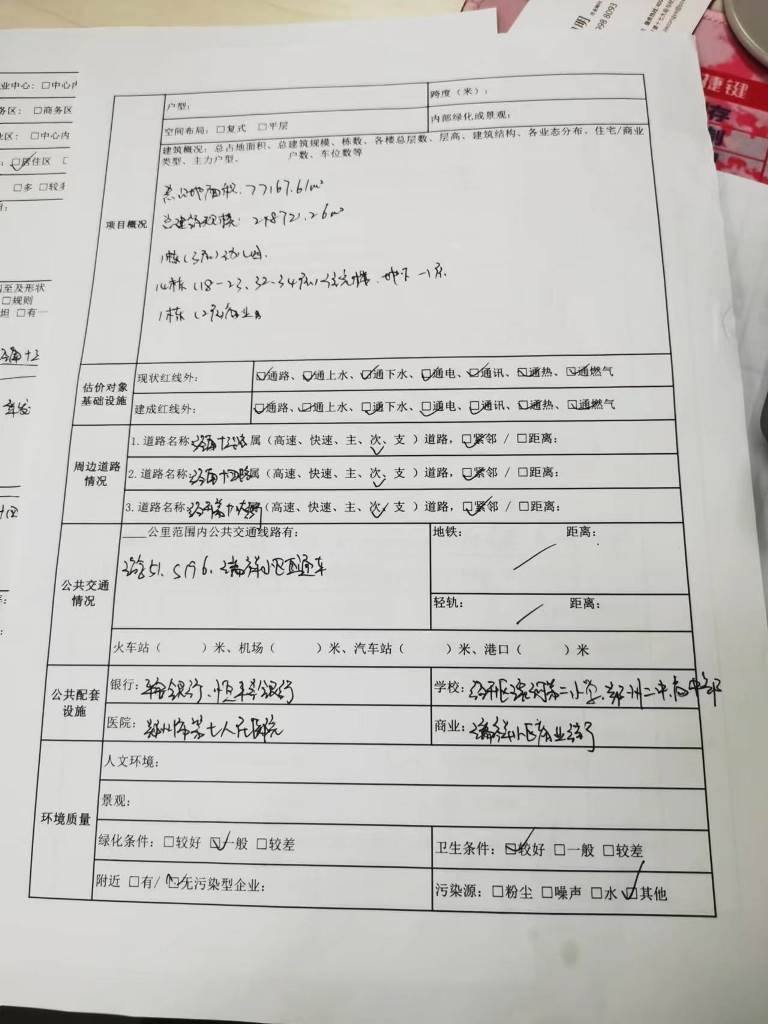 户型：
跨度（米）：
空间布局：□复式 □平层
内部绿化或景观：
项目概况
建筑概况：总占地面积、总建筑规模、栋数、各楼总层数、层高、建筑结构、各业态分布、住宅/商业
类型、主力户型、 户数、车位数等
总占地面积：77167.61m²
总建筑规模：
1栋（3层）幼儿园
14栋（18-23、32-34层）住宅楼，地下一层
1栋（2层）商业
估价对象
基础设施
现状红线外：
☑通路、☑通上水、☑通下水、☑通电、☑通讯、☑通热、☑通燃气
建成红线外：
☑通路、☑通上水、☑通下水、☑通电、☑通讯、☑通热、☑通燃气
周边道路
情况
1.道路名称：属（高速、快速、主、次、支）道路，☑紧邻 / □距离：
2.道路名称：属（高速、快速、主、次、支）道路，☑紧邻 / □距离：
3.道路名称：属（高速、快速、主、次、支）道路，☑紧邻 / □距离：
公共交通
情况
____公里范围内公共交通线路有：
地铁： 距离：
瑞祥小区直通车
轻轨： 距离：
火车站（ ）米、机场（ ）米、汽车站（ ）米、港口（ ）米
公共配套
设施
银行：平安银行、恒丰银行
学校：经开区瑞祥第二小学、郑州二中高中部
医院：郑州市第七人民医院
商业：瑞祥小区商业街
环境质量
人文环境：
景观：
绿化条件：□较好 ☑一般 □较差
卫生条件：☑较好 □一般 □较差
附近 □有/ ☑无污染型企业：
污染源：□粉尘 □噪声 □水 ☑其他
业中心：□中心
务区：□商务区
业区：□中心内
☑居住区
□多 □较多
至及形状
□规则
坦 □有一
398 8093
捷键